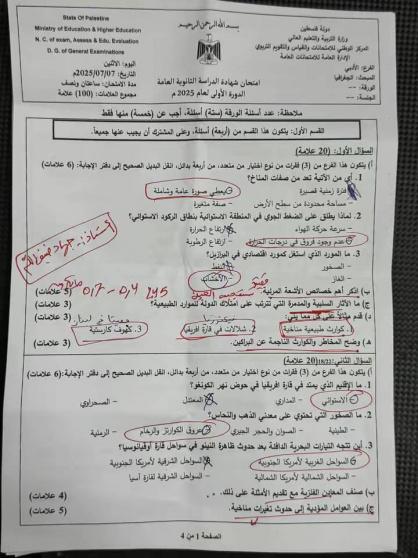 State Of Palestine
Ministry of Education & Higher Education
N. C. of exam, Assess & Edu. Evaluation
D. G. of General Examinations
بسم الله الرحمن الرحيم
دولة فلسطين
وزارة التربية والتعليم العالي
المركز الوطني للامتحانات والقياس والتقويم التربوي
الإدارة العامة للامتحانات العامة
الفرع: الأدبي
المبحث: الجغرافيا
الورقة: --
الجلسة: --
امتحان شهادة الدراسة الثانوية العامة
الدورة الأولى لعام 2025م
اليوم: الاثنين
التاريخ: 2025/07/07م
مدة الامتحان: ساعتان ونصف
مجموع العلامات: (100) علامة
ملاحظة: عدد أسئلة الورقة (ستة) أسئلة، أجب عن (خمسة) منها فقط
القسم الأول: يتكون هذا القسم من (أربعة) أسئلة، وعلى المشترك أن يجيب عنها جميعاً.
السؤال الأول: (20 علامة)
أ) يتكون هذا الفرع من (3) فقرات من نوع اختيار من متعدد، من أربعة بدائل، انقل البديل الصحيح إلى دفتر الإجابة: (6 علامات)
1. أي من الآتية تعد من صفات المناخ؟
- فترة زمنية قصيرة
- يعطي صورة عامة وشاملة
- مساحة محدودة من سطح الأرض
- صفة متغيرة
2. لماذا يطلق على الضغط الجوي في المنطقة الاستوائية بنطاق الركود الاستوائي؟
- سرعة حركة الهواء
- ارتفاع الحرارة
- عدم وجود فروق في درجات الحرارة
- ارتفاع الرطوبة
3. ما المورد الذي استغل كمورد اقتصادي في البرازيل؟
- الصخور
- النفط
- الغاز
- الأخشاب
ب) اذكر أهم خصائص الأشعة المرئية (5 علامات)
0,7 - 0,4
ج) ما الآثار السلبية والمدمرة التي تترتب على امتلاك الدولة للموارد الطبيعية؟
د) قدم مثالاً على كل مما يلي:
1. كوارث طبيعية مناخية
2. شلالات في قارة أفريقيا
3. كهوف كارستية
هـ) وضح المخاطر والكوارث الناجمة عن البراكين.
السؤال الثاني: (20 علامة)
أ) يتكون هذا الفرع من (3) فقرات من نوع اختيار من متعدد، من أربعة بدائل، انقل البديل الصحيح إلى دفتر الإجابة: (6 علامات)
1. ما الإقليم الذي يمتد في قارة افريقيا في حوض نهر الكونغو؟
- الاستوائي
- المداري
- المعتدل
- الصحراوي
2. ما الصخور التي تحتوي على معدني الذهب والنحاس؟
- الطينية
- الصوان والحجر الجيري
- عروق الكوارتز والرخام
- الرملية
3. أين تتجه التيارات البحرية الدافئة بعد حدوث ظاهرة النينو في سواحل قارة أوقيانوسيا؟
- السواحل الغربية لأمريكا الجنوبية
- السواحل الشرقية لأمريكا الجنوبية
- السواحل الشمالية لأمريكا الشمالية
- السواحل الشرقية لقارة آسيا
ب) صنف المعادن الفلزية مع تقديم الأمثلة على ذلك. (4 علامات)
ج) بين العوامل المؤدية إلى حدوث تغيرات مناخية. (5 علامات)
الصفحة 1 من 4